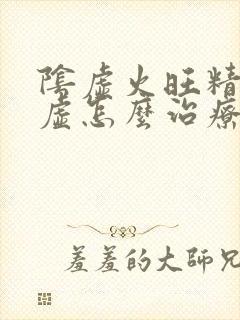 陰虛火旺精
虛怎麼治療
羞羞的大師兄